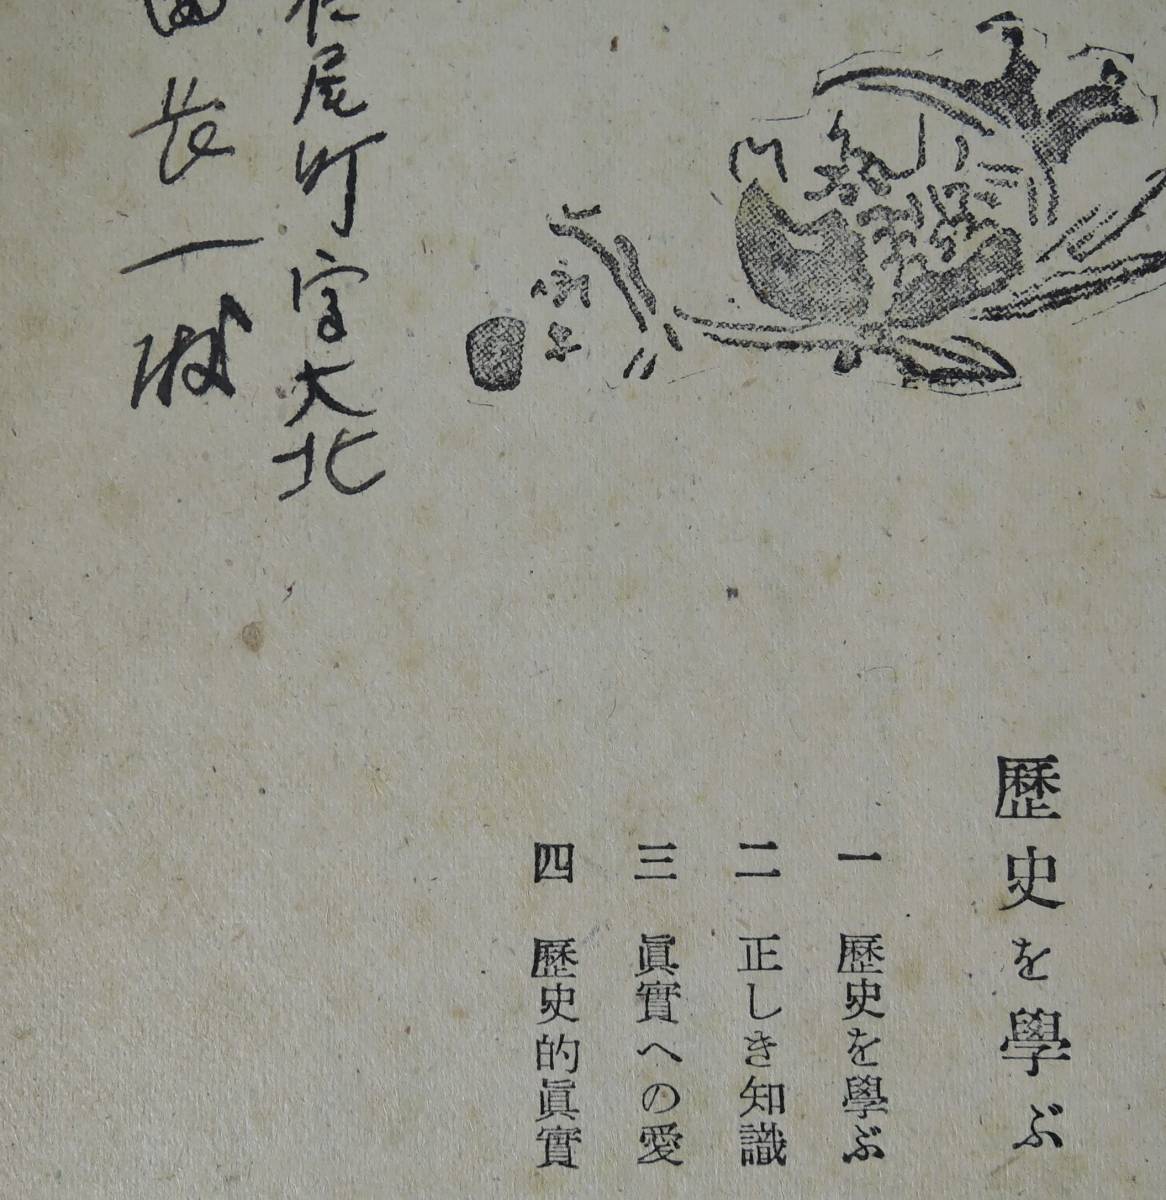 歷史を學ぶ
一 歷史を學ぶ
二 正しき知識
三 眞實への愛
四 歷史的眞實
尾町字大北
長一